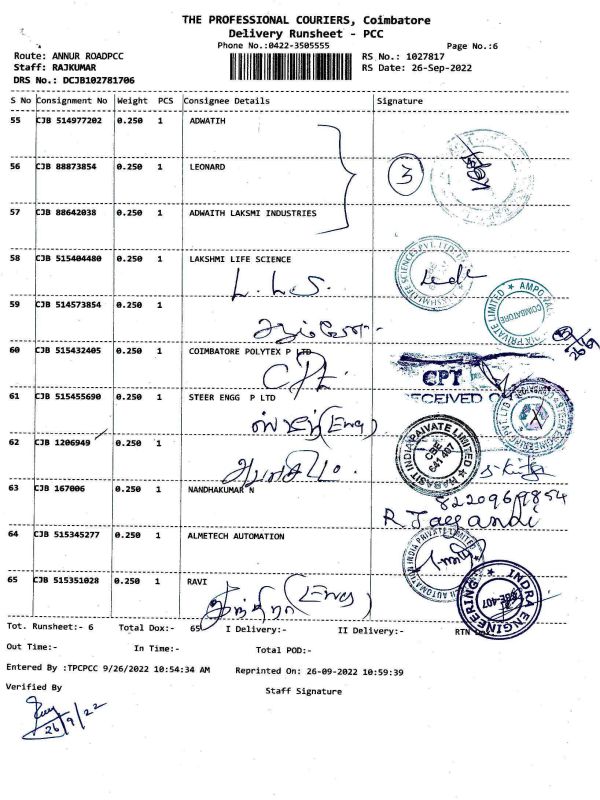 THE PROFESSIONAL COURIERS, Coimbatore
Delivery Runsheet - PCC
Phone No.:0422-3505555
Page No.:6
Route: ANNUR ROADPCC
RS No.: 1027817
Staff: RAJKUMAR
RS Date: 26-Sep-2022
DRS No.: DCJB102781706
S No Consignment No Weight PCS Consignee Details Signature
55 CJB 514977202 0.250 1 ADWATIH
56 CJB 88873854 0.250 1 LEONARD
3
57 CJB 88642038 0.250 1 ADWAITH LAKSMI INDUSTRIES
58 CJB 515404480 0.250 1 LAKSHMI LIFE SCIENCE
L.L.S.
59 CJB 514573854 0.250 1
60 CJB 515432405 0.250 1 COIMBATORE POLYTEX P LTD
CPT
RECEIVED
61 CJB 515455690 0.250 1 STEER ENGG P LTD
(Eng)
62 CJB 1206949 0.250 1
CBE
641 407
63 CJB 167006 0.250 1 NANDHAKUMAR N
R Jayandi
64 CJB 515345277 0.250 1 ALMETECH AUTOMATION
65 CJB 515351028 0.250 1 RAVI
INDRA ENGINEERING
Tot. Runsheet:- 6 Total Dox:- 65 I Delivery:- II Delivery:- RTN
Out Time:- In Time:- Total POD:-
Entered By :TPCPCC 9/26/2022 10:54:34 AM Reprinted On: 26-09-2022 10:59:39
Verified By
Staff Signature
26/9/22